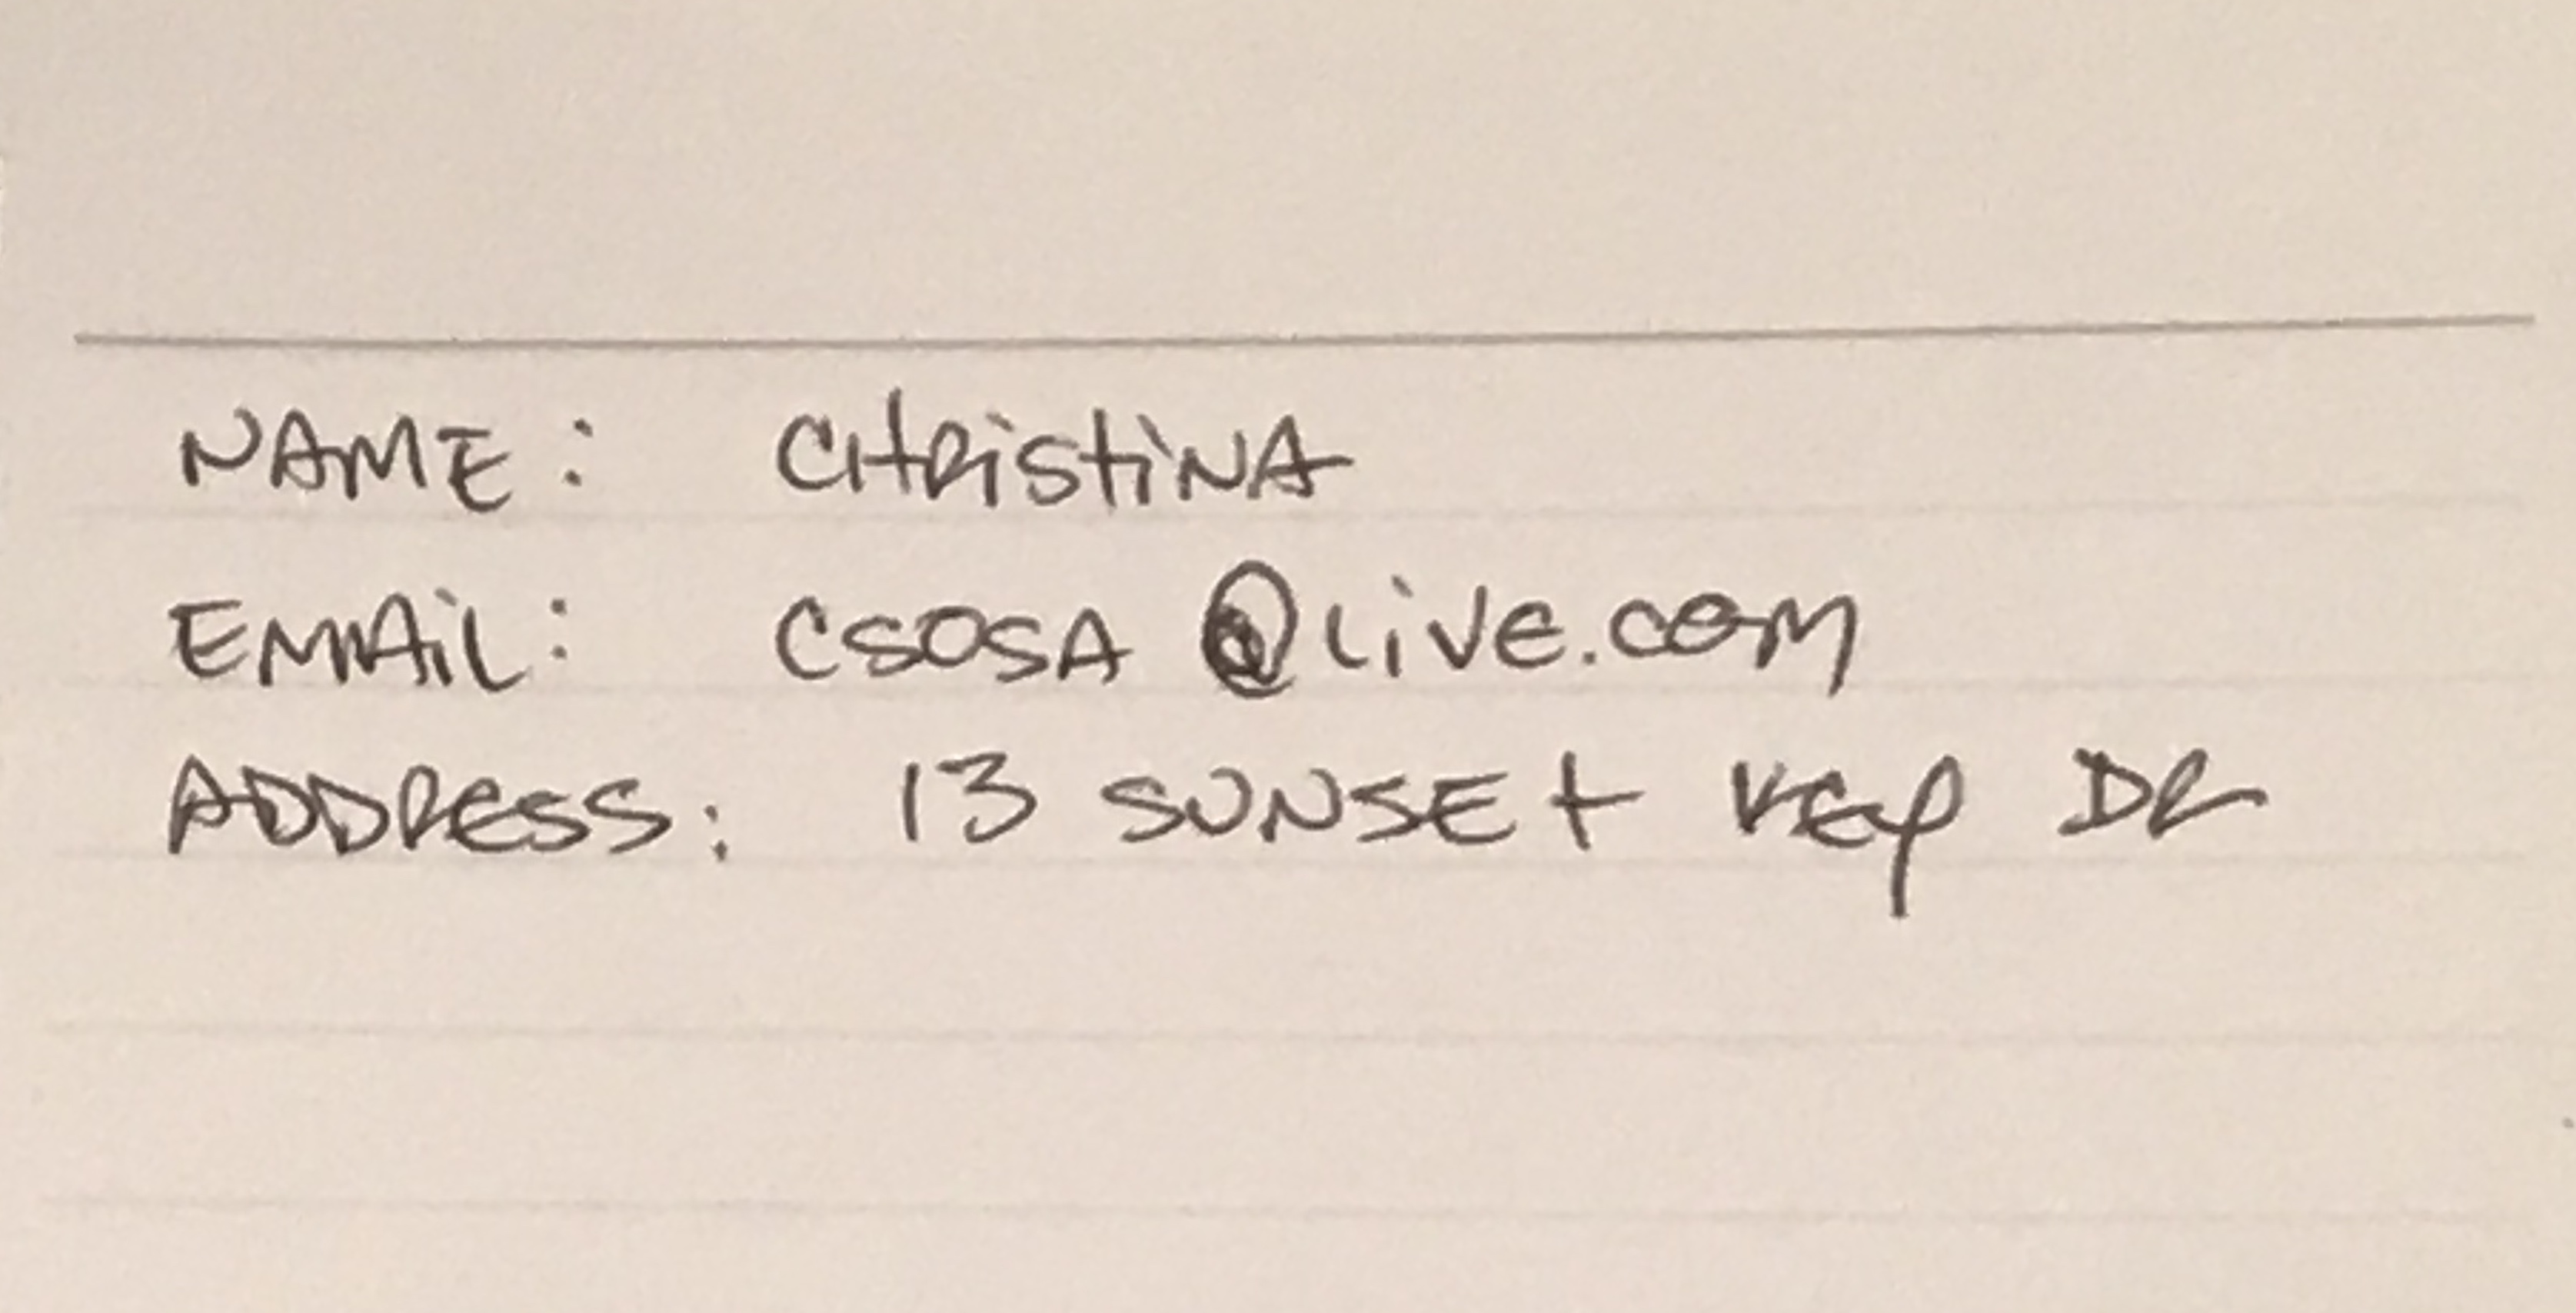 NAME: CHRiStiNA
EMAiL: CSOSA @LiVe.com
ADDRESS: 13 SUNSEt Key DR